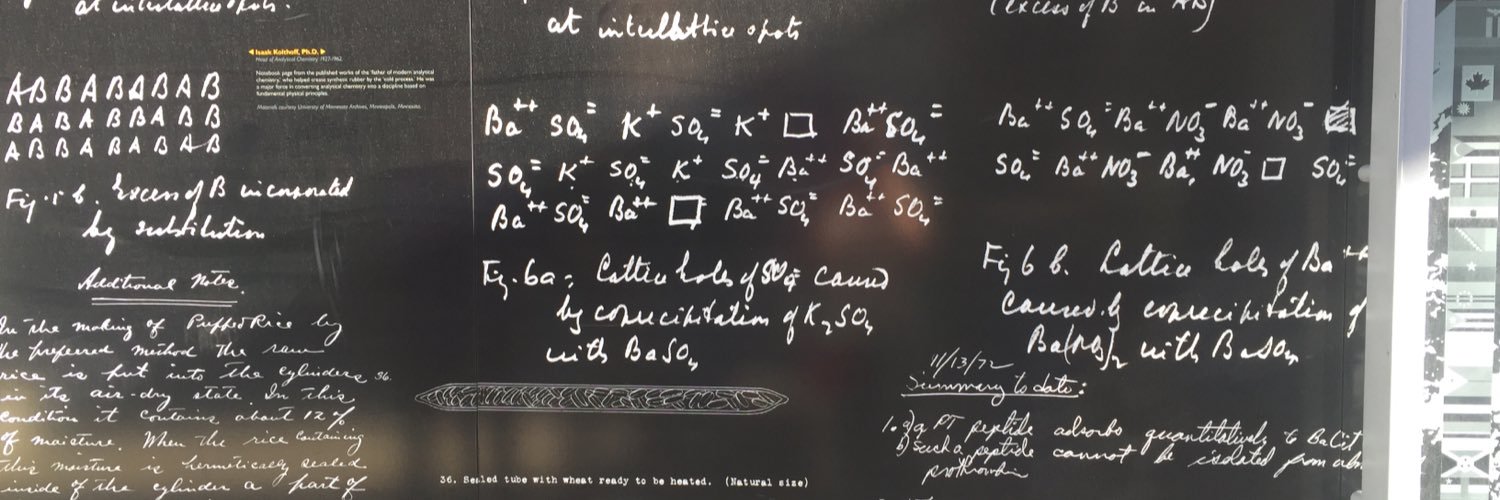 at interlattice spots.
ABBABABAB
BABABBABB
ABBABABAB
Fig. 5 b. Excess of B incorporated
by substitution
Isaak Kolthoff, Ph.D.
Head of Analytical Chemistry 1927-1962.
Notebook page from the published works of the 'father of modern analytical
chemistry,' who helped create synthetic rubber by the 'cold process.' He was
a major force in converting analytical chemistry into a discipline based on
fundamental physical principles.
Materials courtesy University of Minnesota Archives, Minneapolis, Minnesota.
Additional Notes.
In the making of Puffed Rice by
the preferred method the raw
rice is put into the cylinders 36.
in its air-dry state. In this
condition it contains about 12%
of moisture. When the rice containing
this moisture is hermetically sealed
inside of the cylinder a part of
at interlattice spots
Ba++ SO4= K+ SO4= K+ □ Ba++ SO4=
SO4= K+ SO4= K+ SO4= Ba++ SO4= Ba++
Ba++ SO4= Ba++ □ Ba++ SO4= Ba++ SO4=
Fig. 6a: Lattice holes of SO4= caused
by coprecipitation of K2SO4
with BaSO4
36. Sealed tube with wheat ready to be heated. (Natural size)
(excess of B in AB)
Ba++ SO4= Ba++ NO3- Ba++ NO3- □
SO4= Ba++ NO3- Ba++ NO3- □ SO4=
Fig 6 b. Lattice holes of Ba++
caused by coprecipitation of
Ba(NO3)2 with BaSO4
11/13/72
Summary to date:
1. a) a PT peptide adsorbs quantitatively to BaCit
b) such a peptide cannot be isolated from abn
prothrombin